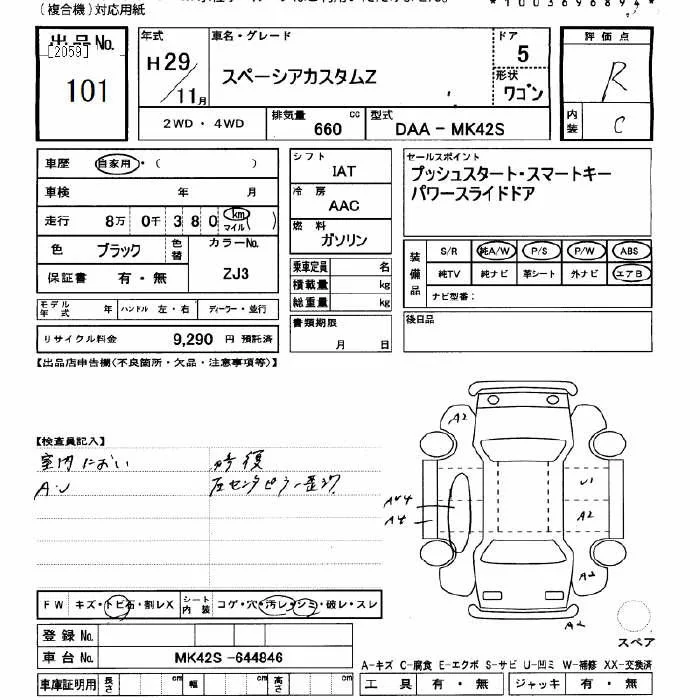 （複合機）対応用紙
出品No.
[2059]
101
年式
H29/11月
車名・グレード
スペーシアカスタムZ
ドア
5
形状
ワゴン
2WD・4WD
排気量 660 cc
型式 DAA－MK42S
評価点
R
内装
C
車歴 自家用・（ ）
車検 年 月
走行 8万 0千 3 8 0 km マイル( )
色 ブラック 色替
カラーNo. ZJ3
保証書 有・無
モデル年式 年 ハンドル 左・右 ディーラー・並行
リサイクル料金 9,290 円 預託済
シフト
IAT
冷房
AAC
燃料
ガソリン
乗車定員 名
積載量 kg
総重量 kg
書類期限
月 日
セールスポイント
プッシュスタート・スマートキー
パワースライドドア
装備品
S/R 純A/W P/S P/W ABS
純TV 純ナビ 革シート 外ナビ エアB
ナビ型番：
後日品
【出品店申告欄(不良箇所・欠品・注意事項等)】
【検査員記入】
室内におい 修復
A・U 左センタピラー歪み
A2
U1
A2
A2
A2
スペア
FW キズ・トビ石・割レX シート内装 コゲ・穴・汚レ・シミ・破レ・スレ
登録No.
車台No. MK42S-644846
車庫証明用 長さ cm 幅 cm 高さ cm
A-キズ C-腐食 E-エクボ S-サビ U-凹ミ W-補修 XX-交換済
工具 有・無 ジャッキ 有・無